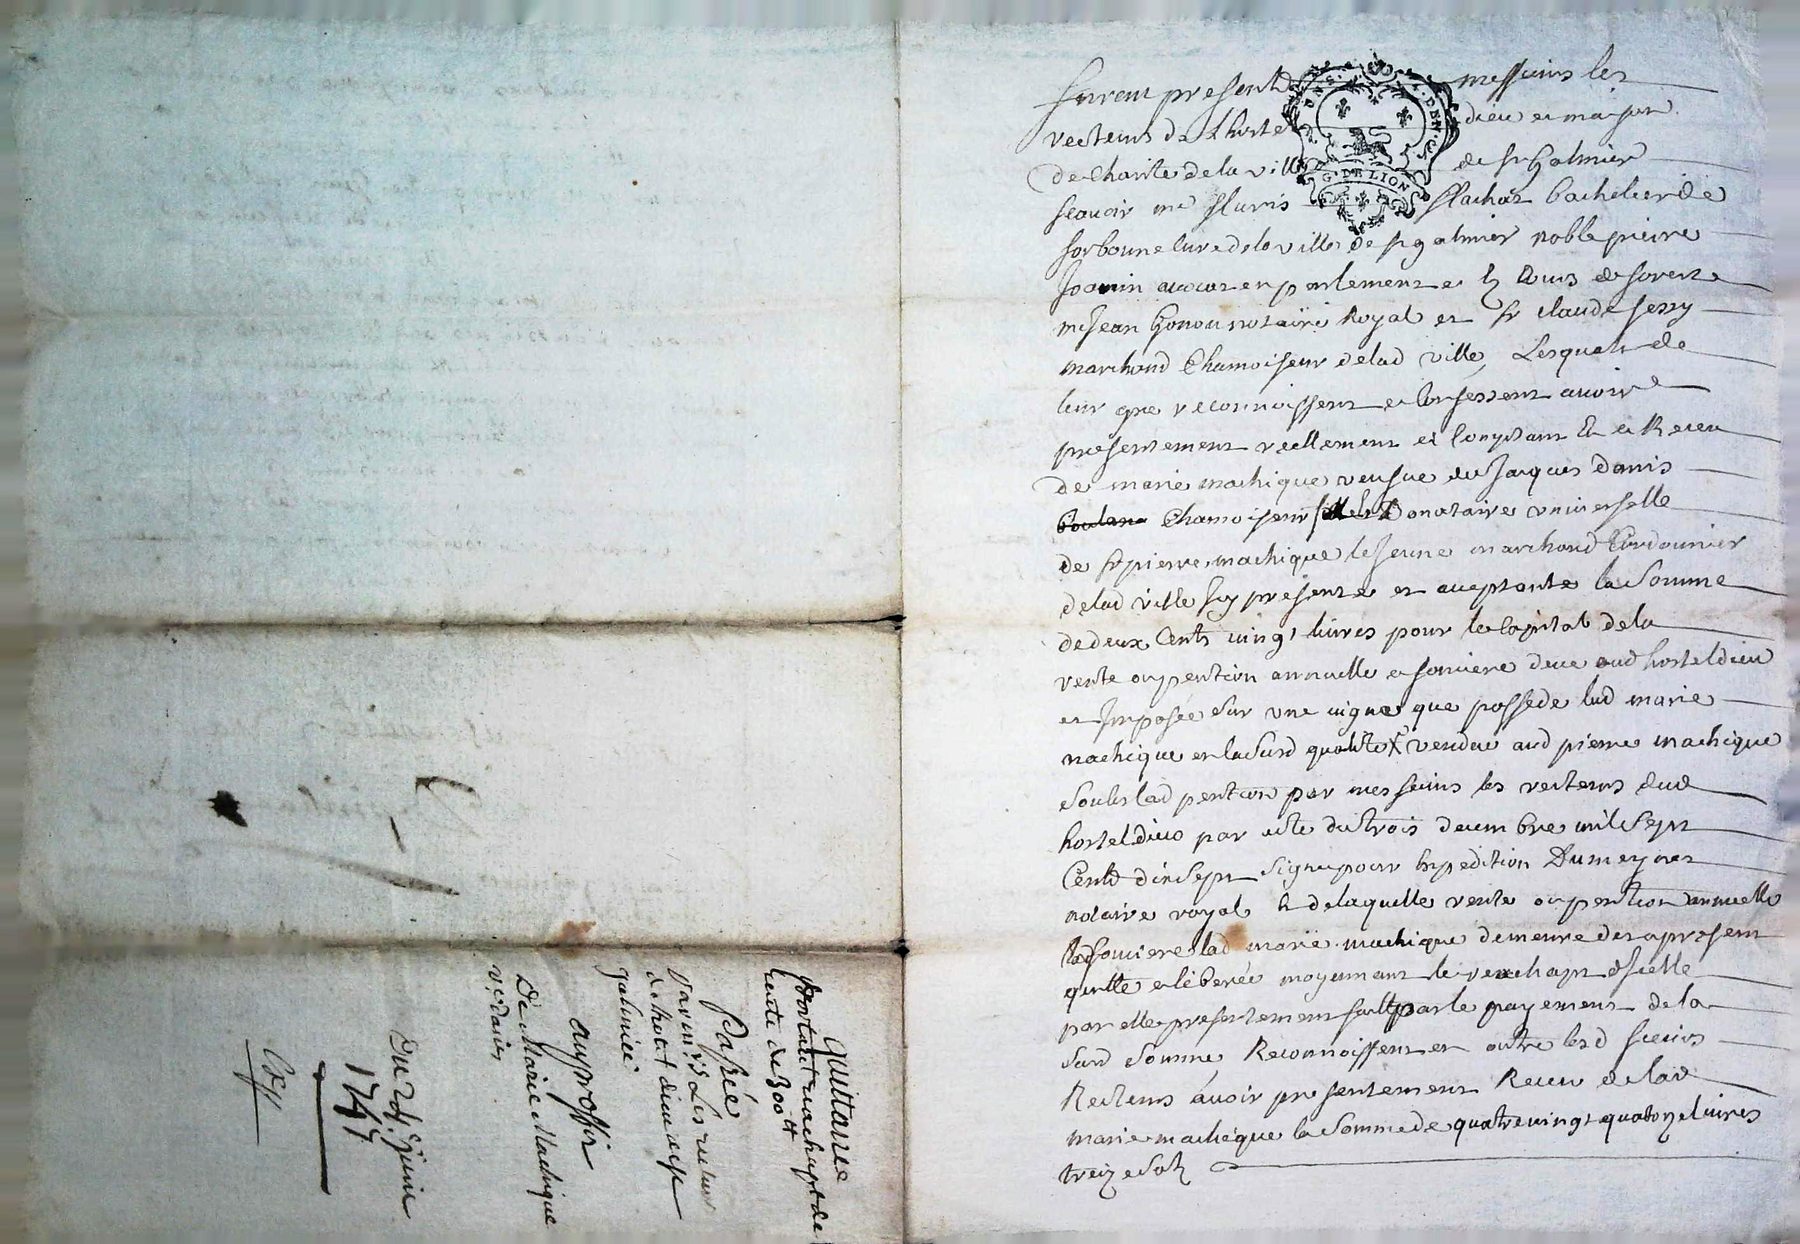 furent presents messieurs les
recteurs de Lhostel dieu et maison
de Charité de la ville de st Galmier
scavoir mre fleuris flachat bachelier de
sorbonne curé de la ville de st galmier noble pierre
Joanin avocat en parlement et ez Cours de forest
me Jean Gonon notaire Royal et sr Claude Jessy
marchand Chamoiseur de lad ville, Lesquels de
leur gré reconnoissent et Confessent avoir
presentement reellement et Comptant Eu et Receu
de marie machique veufve de Jacques danis
Chamoiseur Donataire universelle
de sr pierre machique le Jeune marchand Cordonnier
de lad ville icy presente et acceptante la Somme
de deux Cents vingt livres pour le Capital de la
rente ou pention annuelle et fonciere deue aud hostel dieu
et Imposée Sur une vigne que possede lad marie
machique en lad qualité vendue aud pierre machique
Soubs lad pention par messieurs les recteurs dud
hostel dieu par acte du trois decembre mil Sept
Cents dix Sept Signé pour Expedition Dumeynes
notaire royal de laquelle rente ou pention annuelle
et fonciere lad marie machique demeure des apresent
quitte et liberée moyennant le reachapt d'icelle
par elle presentement fait par le payement de la
susd Somme, Reconnoissent en outre lesd sieurs
Recteurs avoir presentement Receu de lad
marie machique la Somme de quatre vingt quatorze livres
treize sols
G. DE LION
Quittance
Portant reachapt de
rente de 300 tt
Passée
Par mrs Les recteurs
de hotel dieu de st
galmier
au proffit
De Marie Machique
ve danis
Du 24. Juin
1747